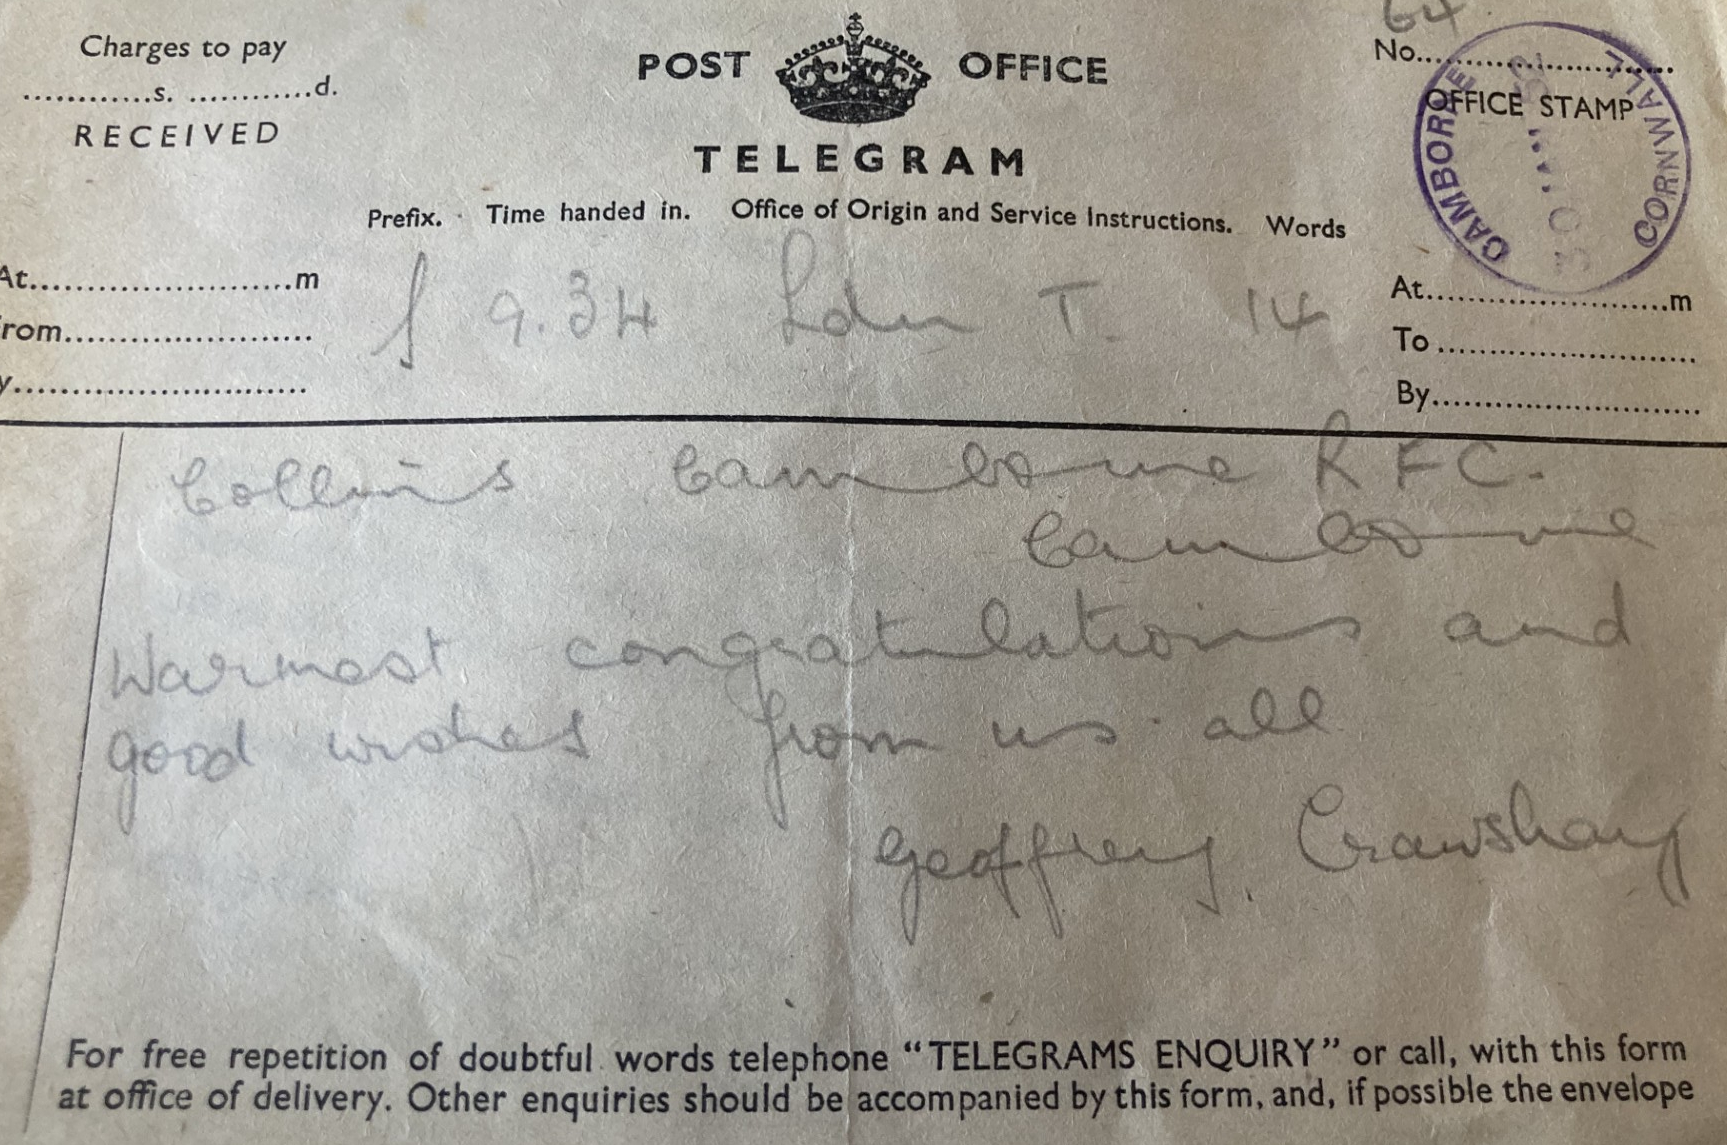 64
Charges to pay
POST OFFICE
No.
............s. ............d.
OFFICE STAMP
RECEIVED
CAMBORNE CORNWALL
TELEGRAM
Prefix. Time handed in. Office of Origin and Service Instructions. Words
At........................m
9.34 Ldn T. 14
At........................m
rom........................
To........................
y...........................
By........................
Collins Camborne RFC.
Camborne
Warmest congratulations and
good wishes from us all
Geoffrey Crawshay
For free repetition of doubtful words telephone “TELEGRAMS ENQUIRY” or call, with this form
at office of delivery. Other enquiries should be accompanied by this form, and, if possible the envelope